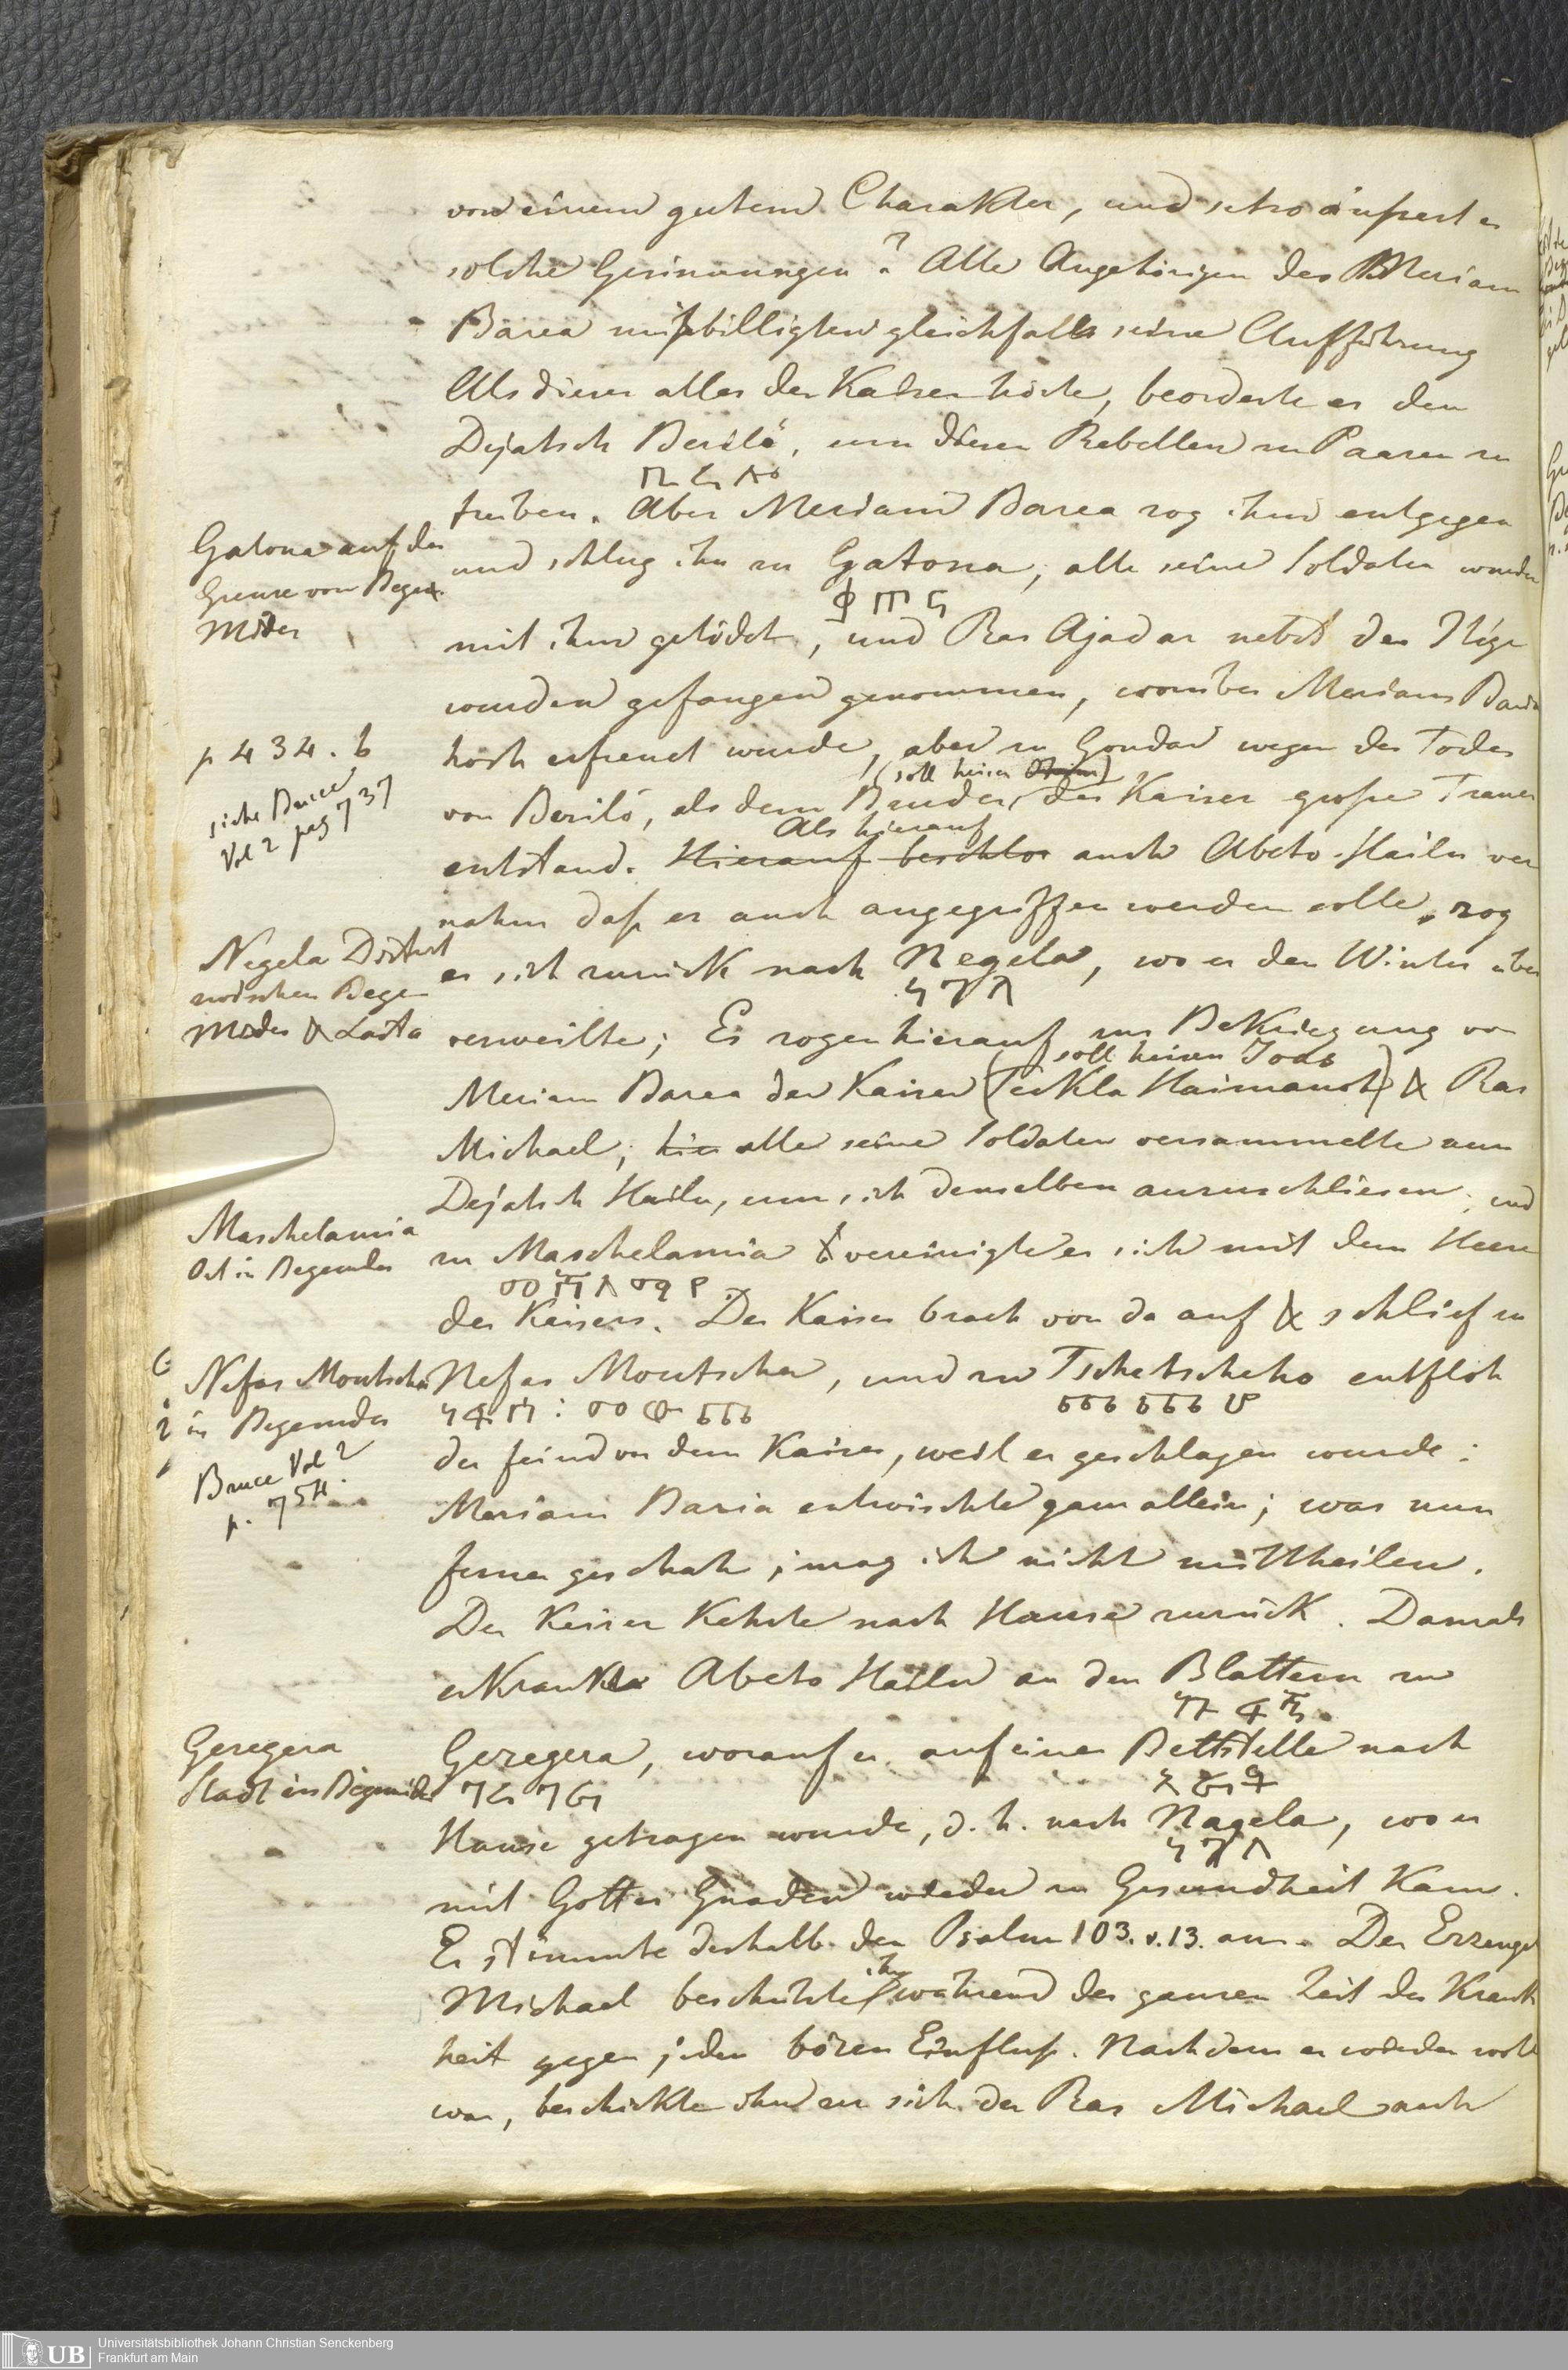 von einem gutem Charakter, und jetzo äußert er
solche Gesinnungen? Alle Angehörigen des Meriam
Barea mißbilligten gleichfalls seine Aufführung
Als dieses alles der Kaiser hörte, beorderte er den
Dejatsch Berilé, um diesen Rebellen zu Paaren zu
treiben. Aber Meriam Barea zog ihm entgegen
Gatona auf der
Grenze von Bege
Mider
und schlug ihn zu Gatona, alle seine Soldaten wurden
mit ihm getödet, und Ras Ajadar nebst den
wurden gefangen genommen, worüber Meriam Barea
p 434. b
hoch erfreut wurde, aber zu Gondar wegen des Todes
(soll heisen)
siehe Bruce
Vol 2 pag 737
von Berilé, als dem Bruder des Kaiser große Trauer
Als hierauf
entstand. Hierauf beschlos auch Abeto Hailu ver
nahm daß er auch angegriffen werden solle, zog
Negela District
zwischen Bege
Meder & Lasta
er sich zurück nach Negela, wo er den Winter über
ነገላ
verweilte; Es zogen hierauf zur Bekriegung von
soll heisen Joas
Meriam Barea der Kaiser (Tekla Haimanot) & Ras
Michael; hie alle seine Soldaten versammelte nun
Dejatsch Hailu, um sich denselben anzuschliesen; und
Maschelamia
Ort in Begemder
zu Maschelamia vereinigte er sich mit dem Heere
des Kaisers. Der Kaiser brach von da auf & schlief zu
Nefas Moutscha
in Begemder
Bruce Vol 2
p. 754.
Nefas Moutscha, und zu Tschetscheho entfloh
der feind vor dem Kaiser, weil er geschlagen wurde:
Meriam Baria entwischte ganz allein; was nun
ferner geschah, mag ich nicht mittheilen.
Der Keiser Kehrte nach Hause zurück. Damals
erkrankte Abeto Hailu an den Blattern zu
Geregera
Stadt in Begemider
Geregera, worauf er auf einer Bettstelle nach
Hause getragen wurde, d. h. nach Nagela, wo er
ነገላ
mit Gottes Gnaden wieder zu Gesundheit Kam.
Er stimmte deshalb den Psalm 103. v. 13. an. Der Erzengel
Michael beschützte ihn während der ganzen Zeit der Krank
heit gegen jeden bösen Einfluß. Nachdem er wieder wohl
war, beschickte ihn zu sich der Ras Michael nach
UB
Universitätsbibliothek Johann Christian Senckenberg
Frankfurt am Main